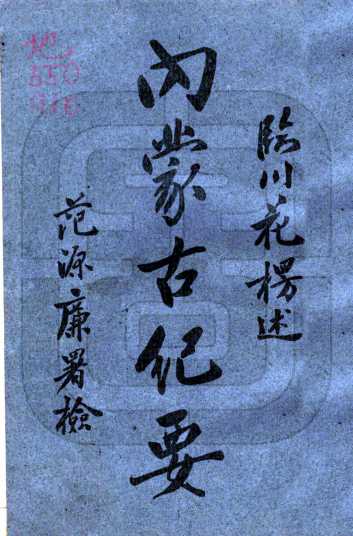 臨川花楞述
内蒙古紀要
范源廉署檢